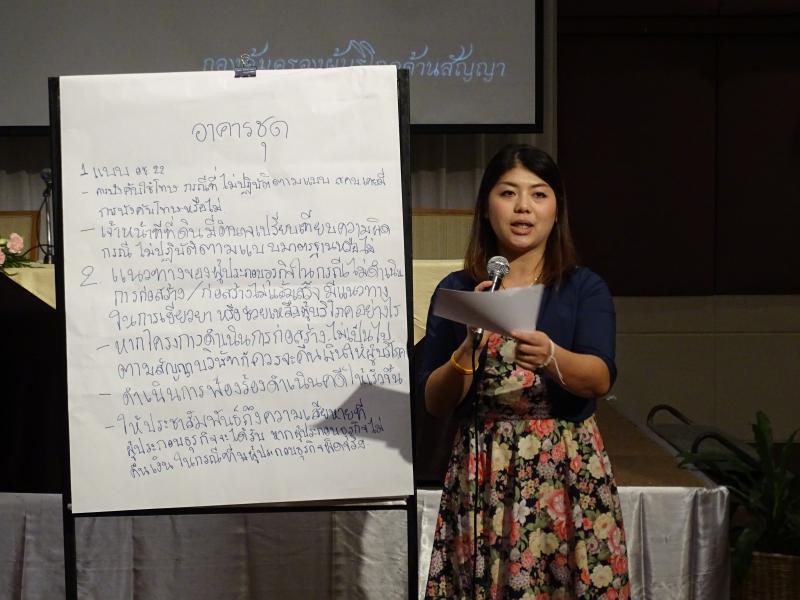 กองคุ้มครองผู้บริโภคด้านสัญญา
อาคารชุด
1 แบบ อช. 22
- การบังคับใช้โทษ กรณีที่ ไม่ปฏิบัติตามแบบ สคบ เคยมี
การบังคับโทษหรือไม่
- เจ้าหน้าที่ที่ดินมีอำนาจเปรียบเทียบความผิด
กรณี ไม่ปฏิบัติตามแบบมาตรฐานหรือไม่
2. แนวทางของผู้ประกอบธุรกิจในกรณีไม่ดำเนิน
การก่อสร้าง / ก่อสร้างไม่แล้วเสร็จ มีแนวทาง
ในการเยียวยา หรือช่วยเหลือผู้บริโภคอย่างไร
- หากโครงการดำเนินการก่อสร้างไม่เป็นไป
ตามสัญญาบริษัทก็ควรจะคืนเงินให้ผู้บริโภค
- ดำเนินการฟ้องร้องดำเนินคดีให้เร็วขึ้น
- ให้ประชาสัมพันธ์ถึงความเสียหายที่
ผู้ประกอบธุรกิจจะได้รับ หากผู้ประกอบธุรกิจไม่
คืนเงิน ในกรณีที่ผู้ประกอบธุรกิจผิดจริง